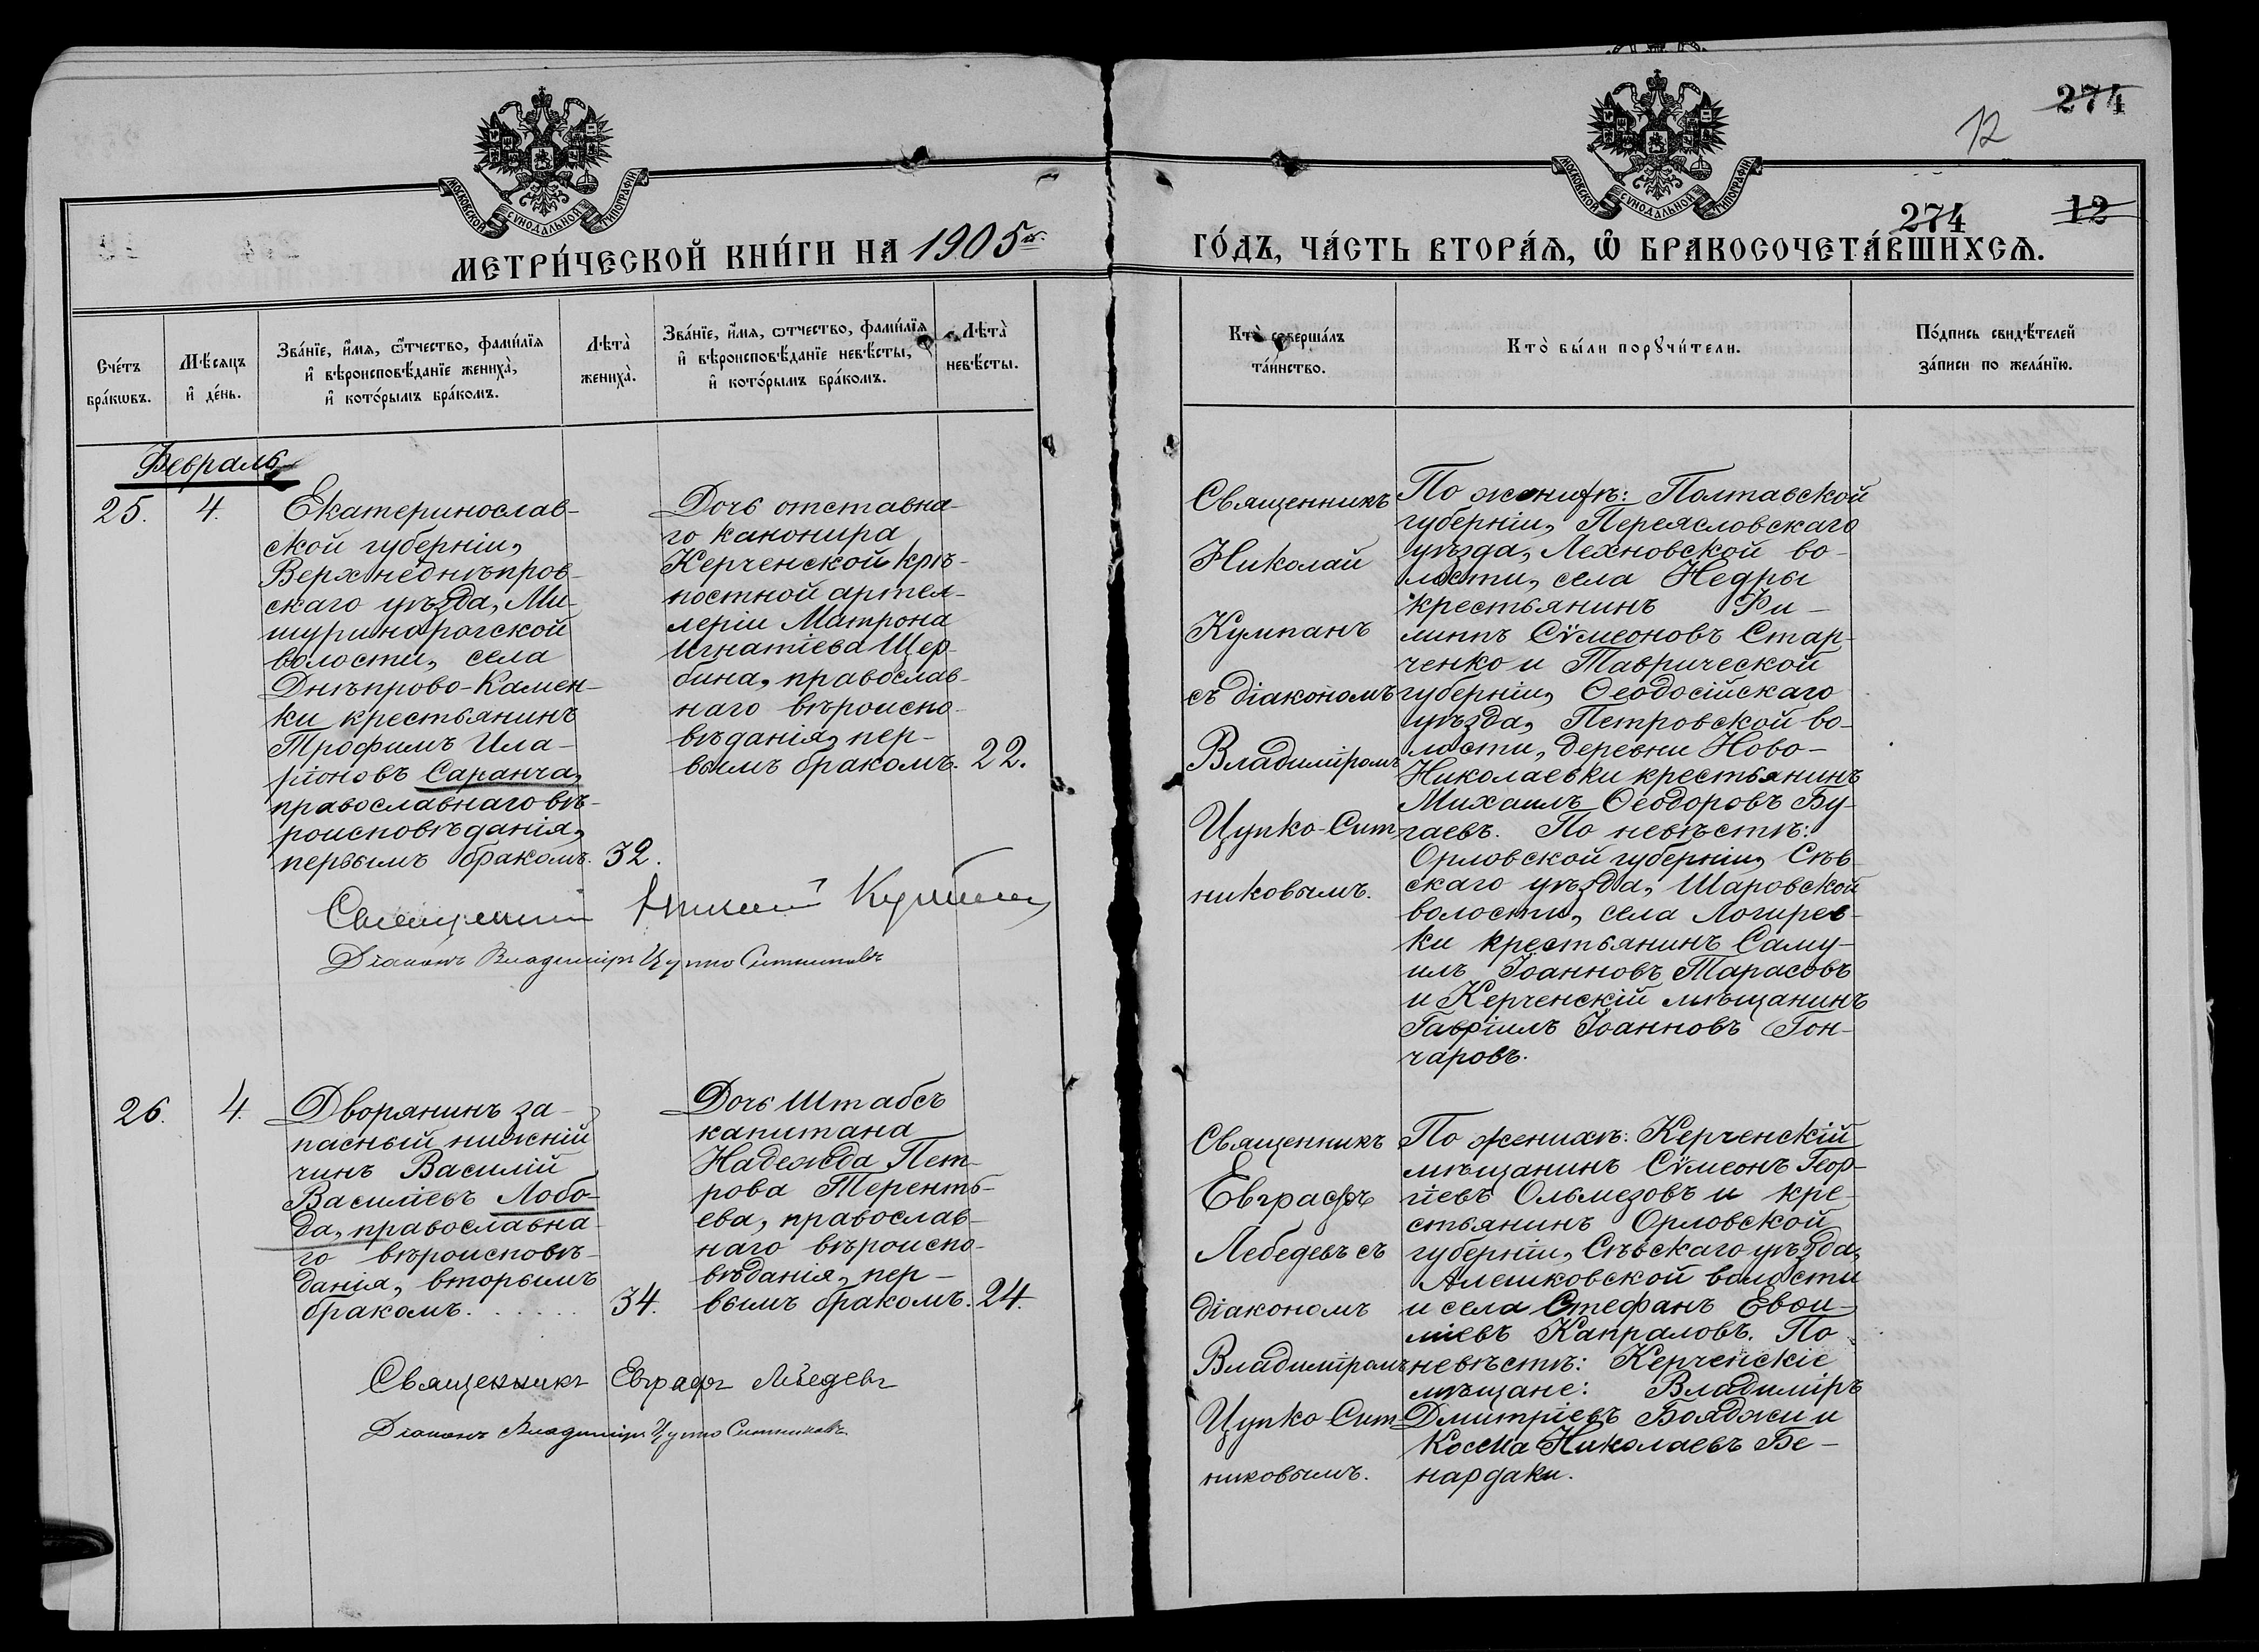 274
12
274
12
МОСКОВСКОЙ СѴНОДАЛЬНОЙ ТИПОГРАФІИ
МОСКОВСКОЙ СѴНОДАЛЬНОЙ ТИПОГРАФІИ
МЕТРИ́ЧЕСКОЙ КНИ́ГИ НА 1905й
ГО́ДЪ, ЧА́СТЬ ВТОРА́Ѧ, Ѡ҆ БРАКОСОЧЕТА́ВШИХСѦ.
Сче́тъ
бра́кѡвъ.
Мѣ́сяцъ
и҆ де́нь.
Зва́нїе, и҆́мя, ѻ҆́тчество, фами́лїя
и҆ вѣроисповѣ́данїе жениха̀,
и҆ кото́рымъ бра́комъ.
Лѣта̀
жениха̀.
Зва́нїе, и҆́мя, ѻтчество, фами́лїя
и҆ вѣроисповѣ́данїе невѣ́сты,
и҆ кото́рымъ бра́комъ.
Лѣта̀
невѣ́сты.
Кто̀ соверша́лъ
та́инство.
Кто̀ бы́ли порꙋчи́тели.
По́дпись свидѣ́телей
за́писи по жела́нїю.
Февраль
25.
4.
Екатеринослав-
ской губерніи,
Верхнеднѣпров-
скаго уѣзда, Ми-
шуринорогской
волости, села
Днѣпрово-Камен-
ки крестьянинъ
Трофимъ Ила-
ріоновъ Саранча,
православнаго вѣ-
роисповѣданія,
первымъ бракомъ.
32.
Дочь отставна-
го канонира
Керченской крѣ-
постной артил-
леріи Матрона
Игнатіева Щер-
бина, православ-
наго вѣроиспо-
вѣданія, пер-
вымъ бракомъ.
22.
Священникъ
Николай
Кумпанъ
съ діакономъ
Владиміромъ
Цупко-Сит-
никовымъ.
По женихѣ: Полтавской
губерніи, Переясловскаго
уѣзда, Лехновской во-
лости, села Недры
крестьянинъ Фи-
липпъ Сѵмеоновъ Стар-
ченко и Таврической
губерніи, Ѳеодосійскаго
уѣзда, Петровской во-
лости, деревни Ново-
Николаевки крестьянинъ
Михаилъ Ѳеодоровъ Бу-
гаевъ. По невѣстѣ:
Орловской губерніи, Сѣв-
скаго уѣзда, Шаровской
волости, села Логирев-
ки крестьянинъ Саму-
илъ Іоанновъ Тарасовъ
и Керченскій мѣщанинъ
Гавріилъ Іоанновъ Гон-
чаровъ.
Священникъ Николай Кумпанъ
Діаконъ Владиміръ Цупко Ситниковъ
26.
4.
Дворянинъ за-
пасный нижній
чинъ Василій
Василіевъ Лобо-
да, православна-
го вѣроисповѣ-
данія, вторымъ
бракомъ.
34.
Дочь Штабсъ
капитана
Надежда Пет-
рова Теренть-
ева, православ-
наго вѣроиспо-
вѣданія, пер-
вымъ бракомъ.
24.
Священникъ
Евграфъ
Лебедевъ съ
діакономъ
Владиміромъ
Цупко-Сит-
никовымъ.
По женихѣ: Керченскій
мѣщанинъ Сѵмеонъ Геор-
гіевъ Ольмезовъ и кре-
стьянинъ Орловской
губерніи, Сѣвскаго уѣзда,
Алешковской волости
и села Стефанъ Евѳи-
міевъ Капраловъ. По
невѣстѣ: Керченскіе
мѣщане: Владиміръ
Дмитріевъ Бояджи и
Косма Николаевъ Бе-
нардаки.
Священникъ Евграфъ Лебедевъ
Діаконъ Владиміръ Цупко Ситниковъ